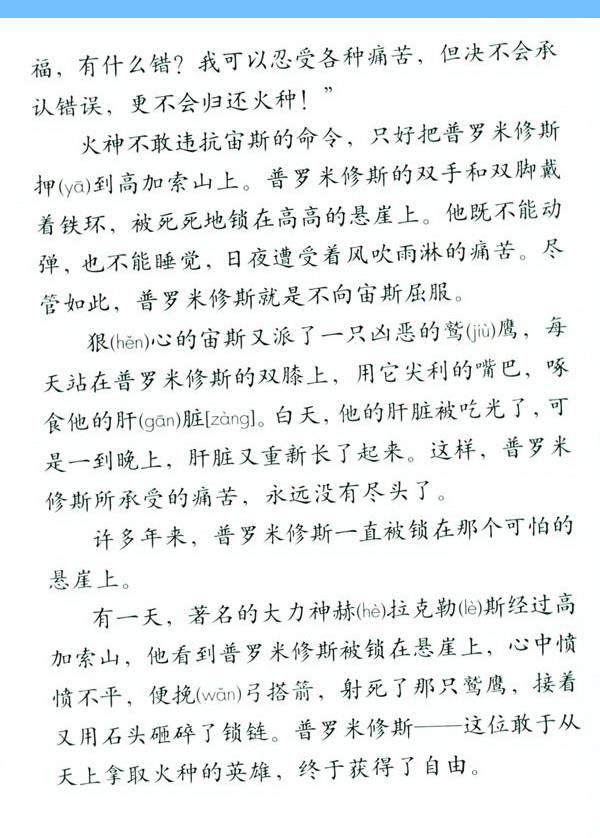 福，有什么错？我可以忍受各种痛苦，但决不会承
认错误，更不会归还火种！”
火神不敢违抗宙斯的命令，只好把普罗米修斯
押(yā)到高加索山上。普罗米修斯的双手和双脚戴
着铁环，被死死地锁在高高的悬崖上。他既不能动
弹，也不能睡觉，日夜遭受着风吹雨淋的痛苦。尽
管如此，普罗米修斯就是不向宙斯屈服。
狠(hěn)心的宙斯又派了一只凶恶的鹫(jiù)鹰，每
天站在普罗米修斯的双膝上，用它尖利的嘴巴，啄
食他的肝(gān)脏[zàng]。白天，他的肝脏被吃光了，可
是一到晚上，肝脏又重新长了起来。这样，普罗米
修斯所承受的痛苦，永远没有尽头了。
许多年来，普罗米修斯一直被锁在那个可怕的
悬崖上。
有一天，著名的大力神赫(hè)拉克勒(lè)斯经过高
加索山，他看到普罗米修斯被锁在悬崖上，心中愤
愤不平，便挽(wǎn)弓搭箭，射死了那只鹫鹰，接着
又用石头砸碎了锁链。普罗米修斯——这位敢于从
天上拿取火种的英雄，终于获得了自由。